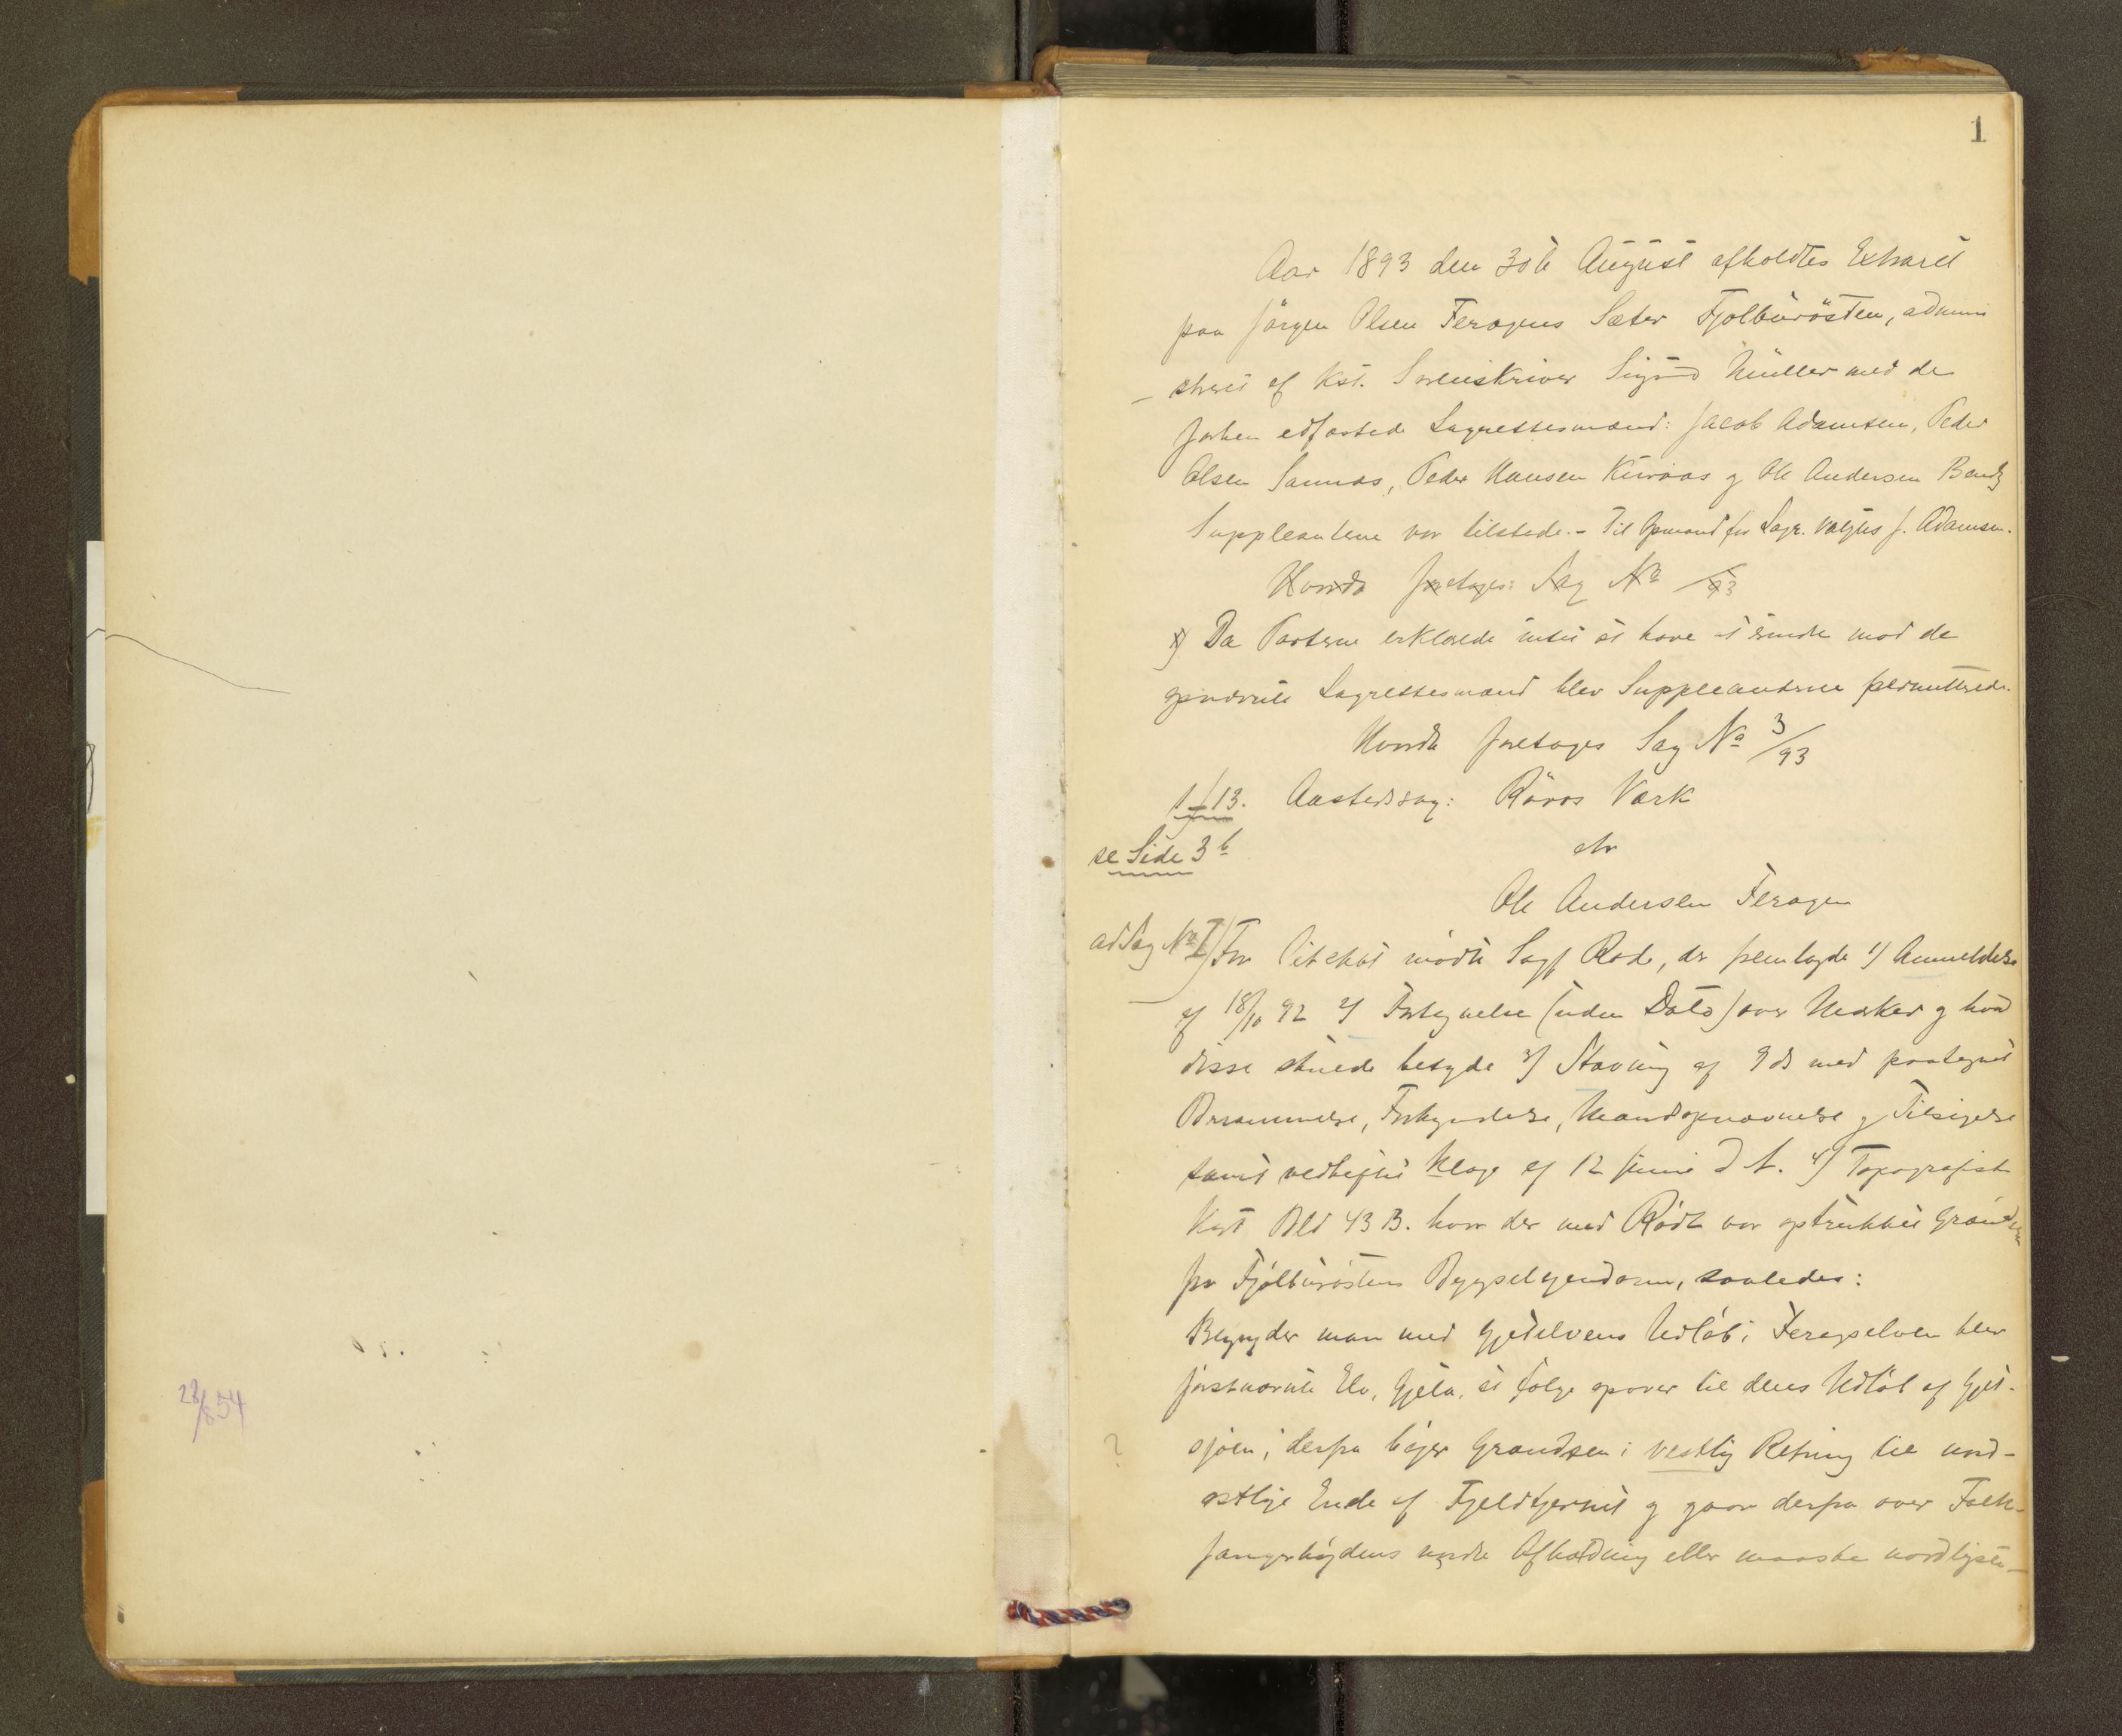 1
Aar 1893 den 30te August afholdtes Extraret
paa Jörgen Olsen Feragens Sæter Fjolburösten, admini
streret af Kst. Sorenskriver Sigurd Müller med de
forhen edfæstede Lagrettesmænd: Jacob Adamsen, Peder
Olsen Sannæs, Peder Hansen Kuraas og Ole Andersen
Suppleanterne var tilstede. - Til Opmand for Lagr. valgtes J. Adamsen.
Hvorda foretoges: Sag No /93
x) Da Parterne erklærede intet at have at erindre mod de
opnævnte Lagrettesmænd blev Suppleanterne permitterede.
Hvorda foretoges Sag No 3/93
1/13. Aastedssag: Röros Værk
se Side 3b
ctr
Ole Andersen Feragen
ad Sag No I) For Citstist mödte Sagf Rode, der fremlagde 1) Anmeldelse
af 18/10 92 2) Fortegnelse (uden Dato) over Mærker og hvad
disse skulde betyde 3) Stævning af 9 ds med paategnet
Berammelse, Forkyndelse, Mandopnævnelse og Tilsigelse
samt vedheftet Klage af 12 Juni d A. 4) Topografisk
Kart Bld 43 B. hvor der med Rödt var optrukket Grændsen
for Fjölburöstens Bygseleiendom, saaledes:
Begynder man med Gjetelvens Udlöb i Feragselven blev
förstnævnte Elv, Gjeta, at fölge opover til dens Udlöb af Gjet-
sjöen; derfra böjer Grændsen i vestlig Retning til nord-
östlige Ende af Fjeldtjernet og gaar derfra over Falk-
fangerhöjdens nordre Afhældning eller maaske nordligste
?
28/8 54